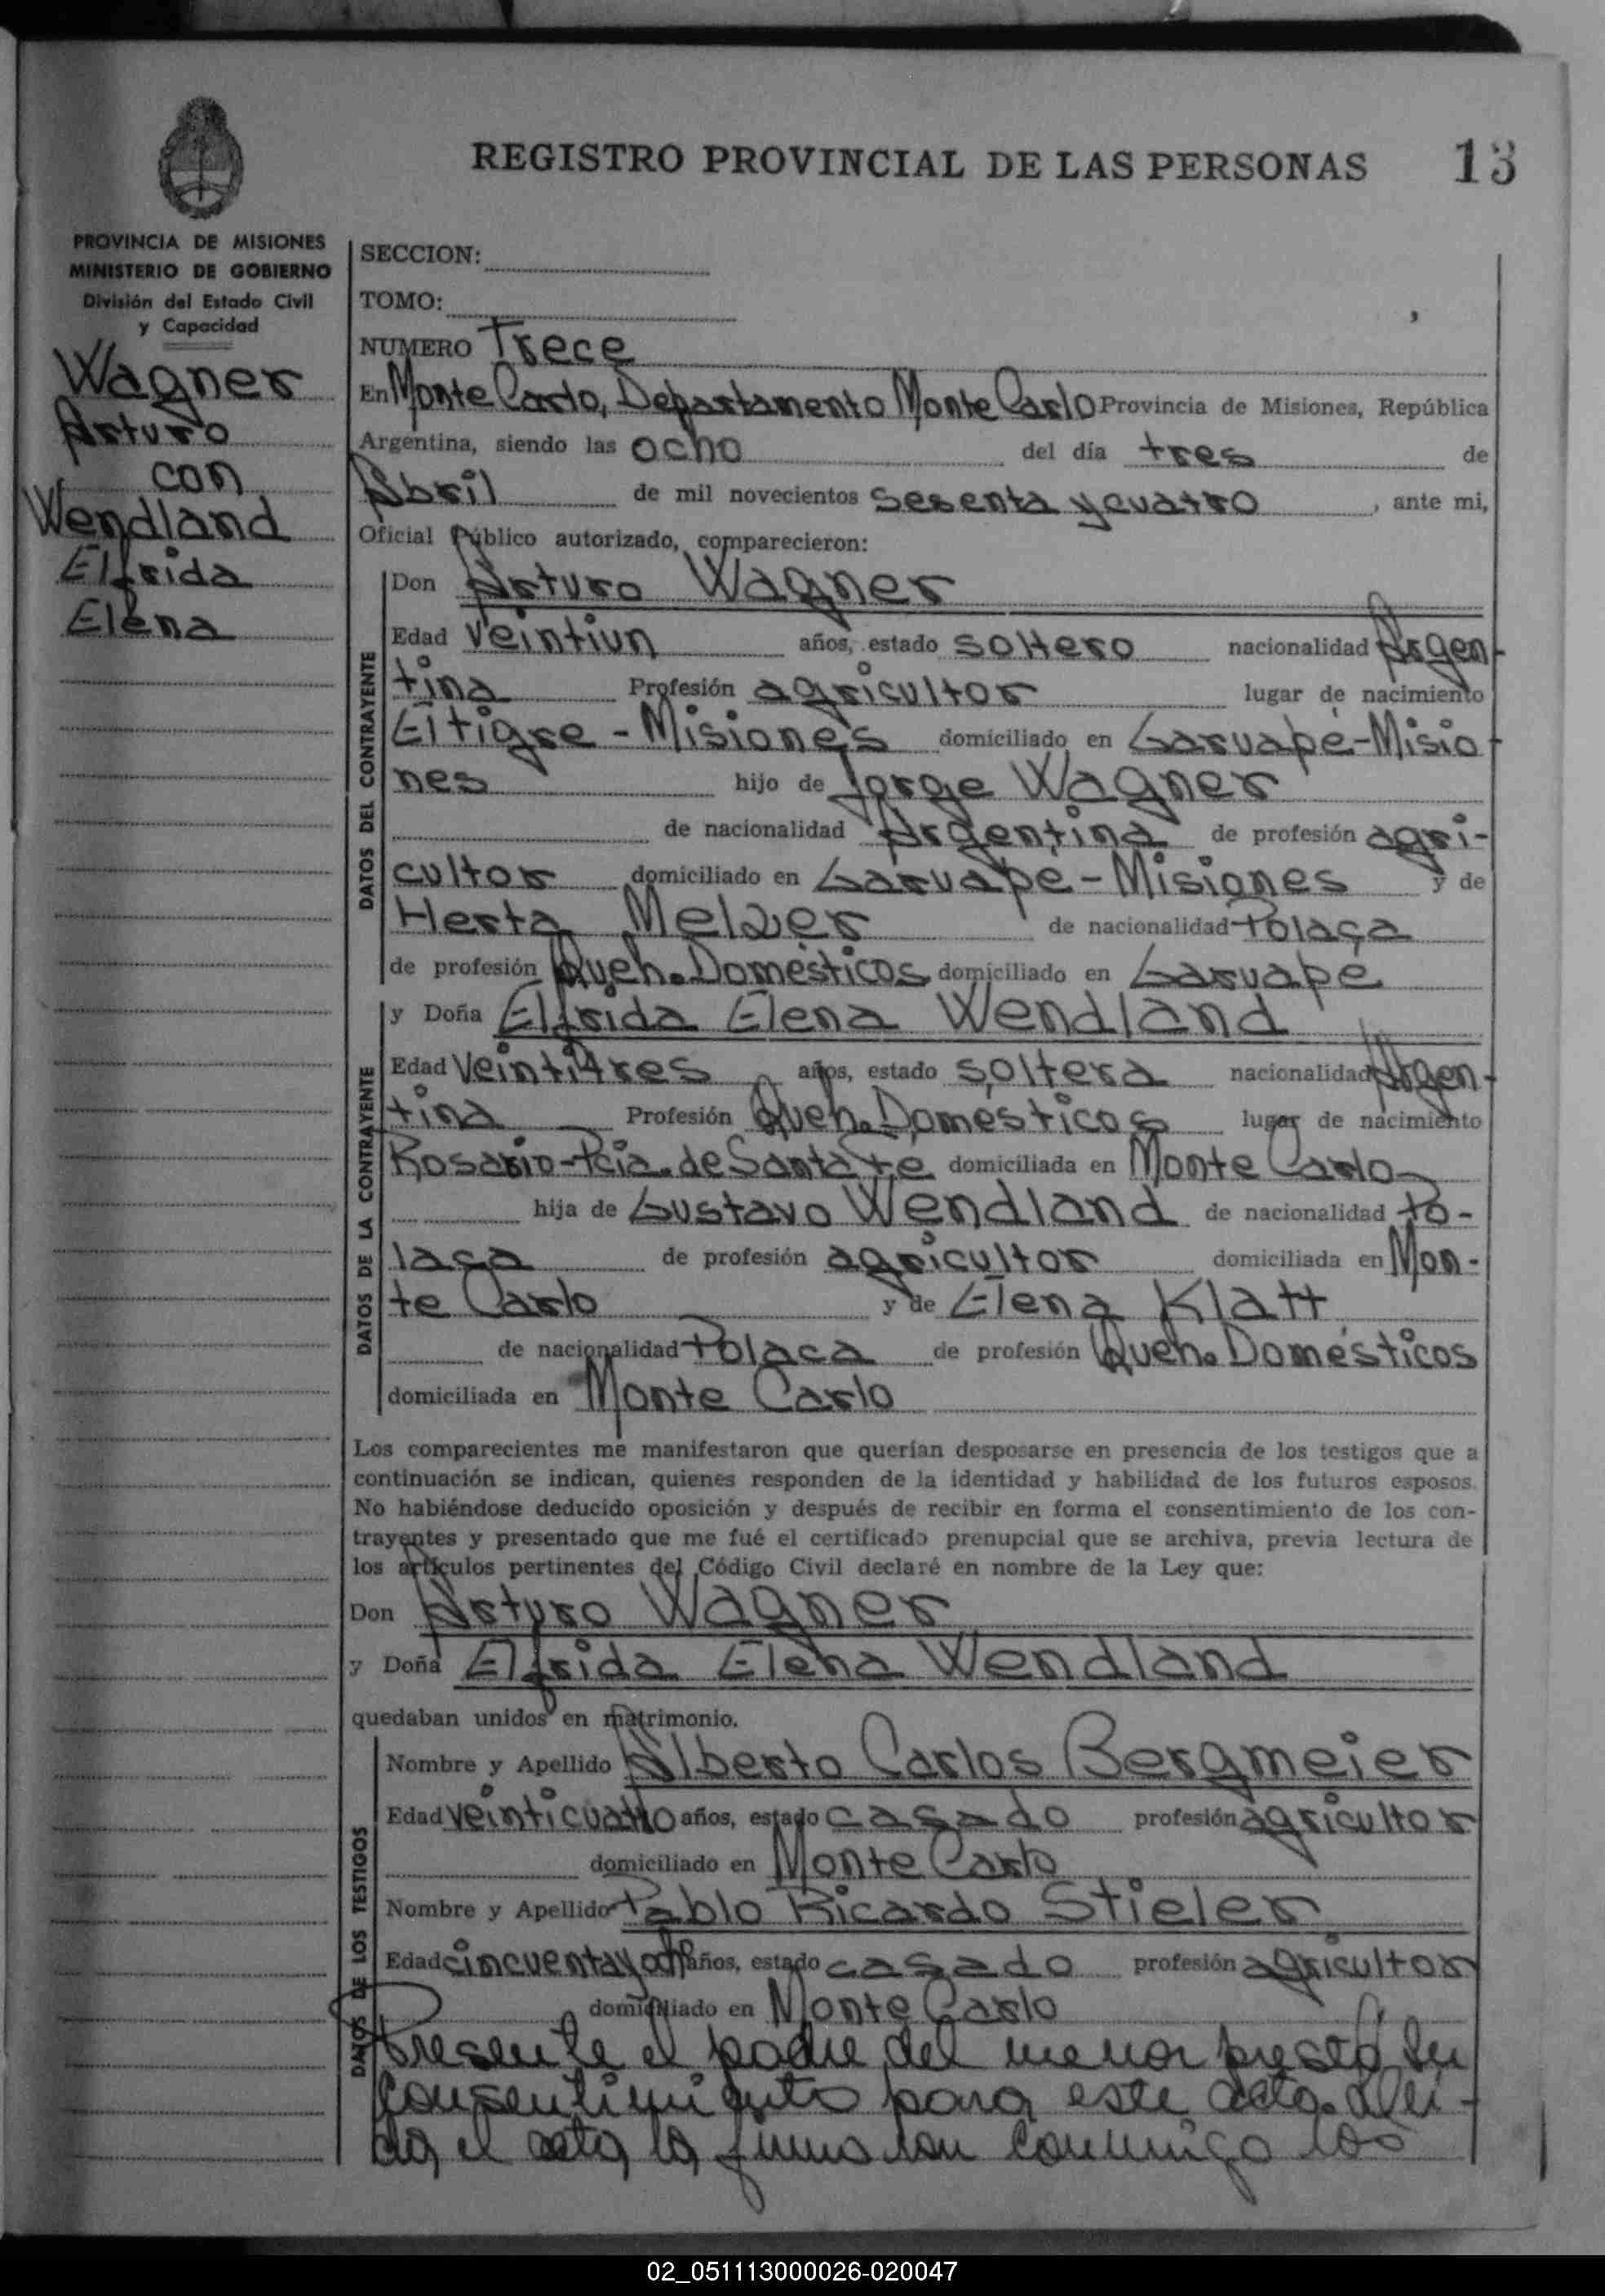 REGISTRO PROVINCIAL DE LAS PERSONAS 13
PROVINCIA DE MISIONES
MINISTERIO DE GOBIERNO
División del Estado Civil
y Capacidad
Wagner
Arturo
con
Wendland
Elfrida
Elena
SECCION:
TOMO:
NUMERO Trece
En Monte Carlo, Departamento Monte Carlo Provincia de Misiones, República
Argentina, siendo las ocho del día tres de
Abril de mil novecientos sesenta y cuatro, ante mi,
Oficial Público autorizado, comparecieron:
DATOS DEL CONTRAYENTE
Don Arturo Wagner
Edad veintiun años, estado soltero nacionalidad Argen-
tina Profesión agricultor lugar de nacimiento
El tigre - Misiones domiciliado en Garuapé-Misio
nes hijo de Jorge Wagner
de nacionalidad Argentina de profesión agri-
cultor domiciliado en Garuapé - Misiones y de
Herta Melzer de nacionalidad Polaca
de profesión Queh. Domésticos domiciliado en Garuapé
DATOS DE LA CONTRAYENTE
y Doña Elfrida Elena Wendland
Edad veintitres años, estado soltera nacionalidad Argen-
tina Profesión Queh. Domésticos lugar de nacimiento
Rosario-Pcia. de Santa Fe domiciliada en Monte Carlo
hija de Gustavo Wendland de nacionalidad Po-
laca de profesión agricultor domiciliada en Mon-
te Carlo y de Elena Klatt
de nacionalidad Polaca de profesión Queh. Domésticos
domiciliada en Monte Carlo
Los comparecientes me manifestaron que querían desposarse en presencia de los testigos que a
continuación se indican, quienes responden de la identidad y habilidad de los futuros esposos.
No habiéndose deducido oposición y después de recibir en forma el consentimiento de los con-
trayentes y presentado que me fué el certificado prenupcial que se archiva, previa lectura de
los artículos pertinentes del Código Civil declaré en nombre de la Ley que:
Don Arturo Wagner
y Doña Elfrida Elena Wendland
quedaban unidos en matrimonio.
DATOS DE LOS TESTIGOS
Nombre y Apellido Alberto Carlos Bergmeier
Edad veinticuatro años, estado casado profesión agricultor
domiciliado en Monte Carlo
Nombre y Apellido Pablo Ricardo Stieler
Edad cincuenta y años, estado casado profesión agricultor
domiciliado en Monte Carlo
Presente el padre del menor prestó su
consentimiento para este acto. Leí-
da el acta la firman conmigo los
02_051113000026-020047